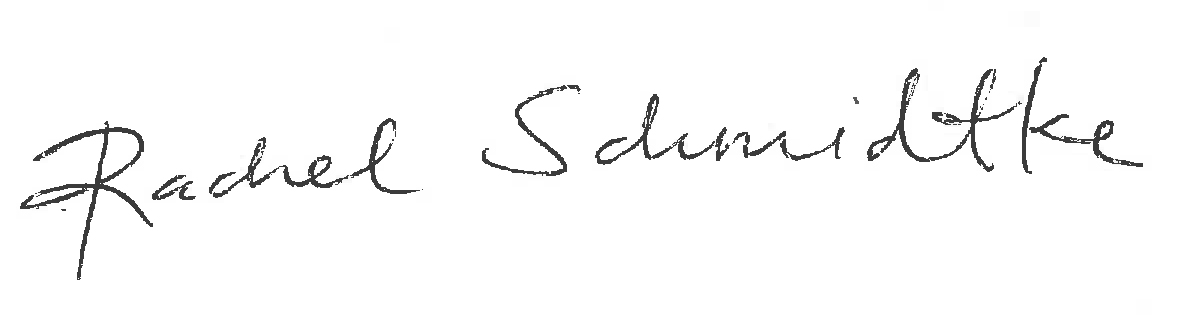 Rachel Schmidtke